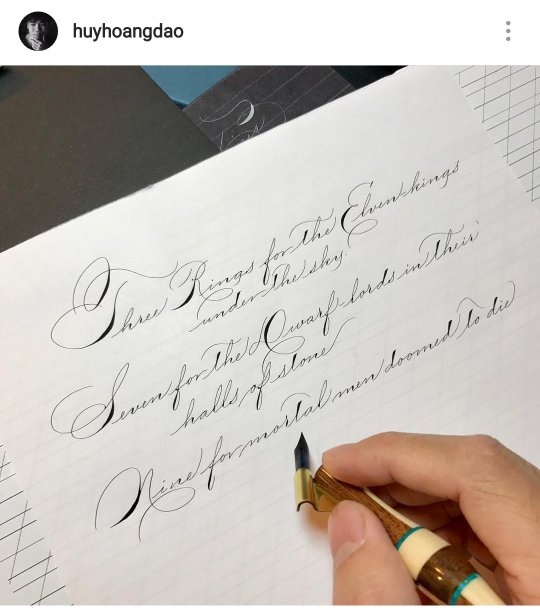 huyhoangdao
Three Rings for the Elven kings
under the sky.
Seven for the Dwarf-lords in their
halls of stone
Nine for mortal men doomed to die